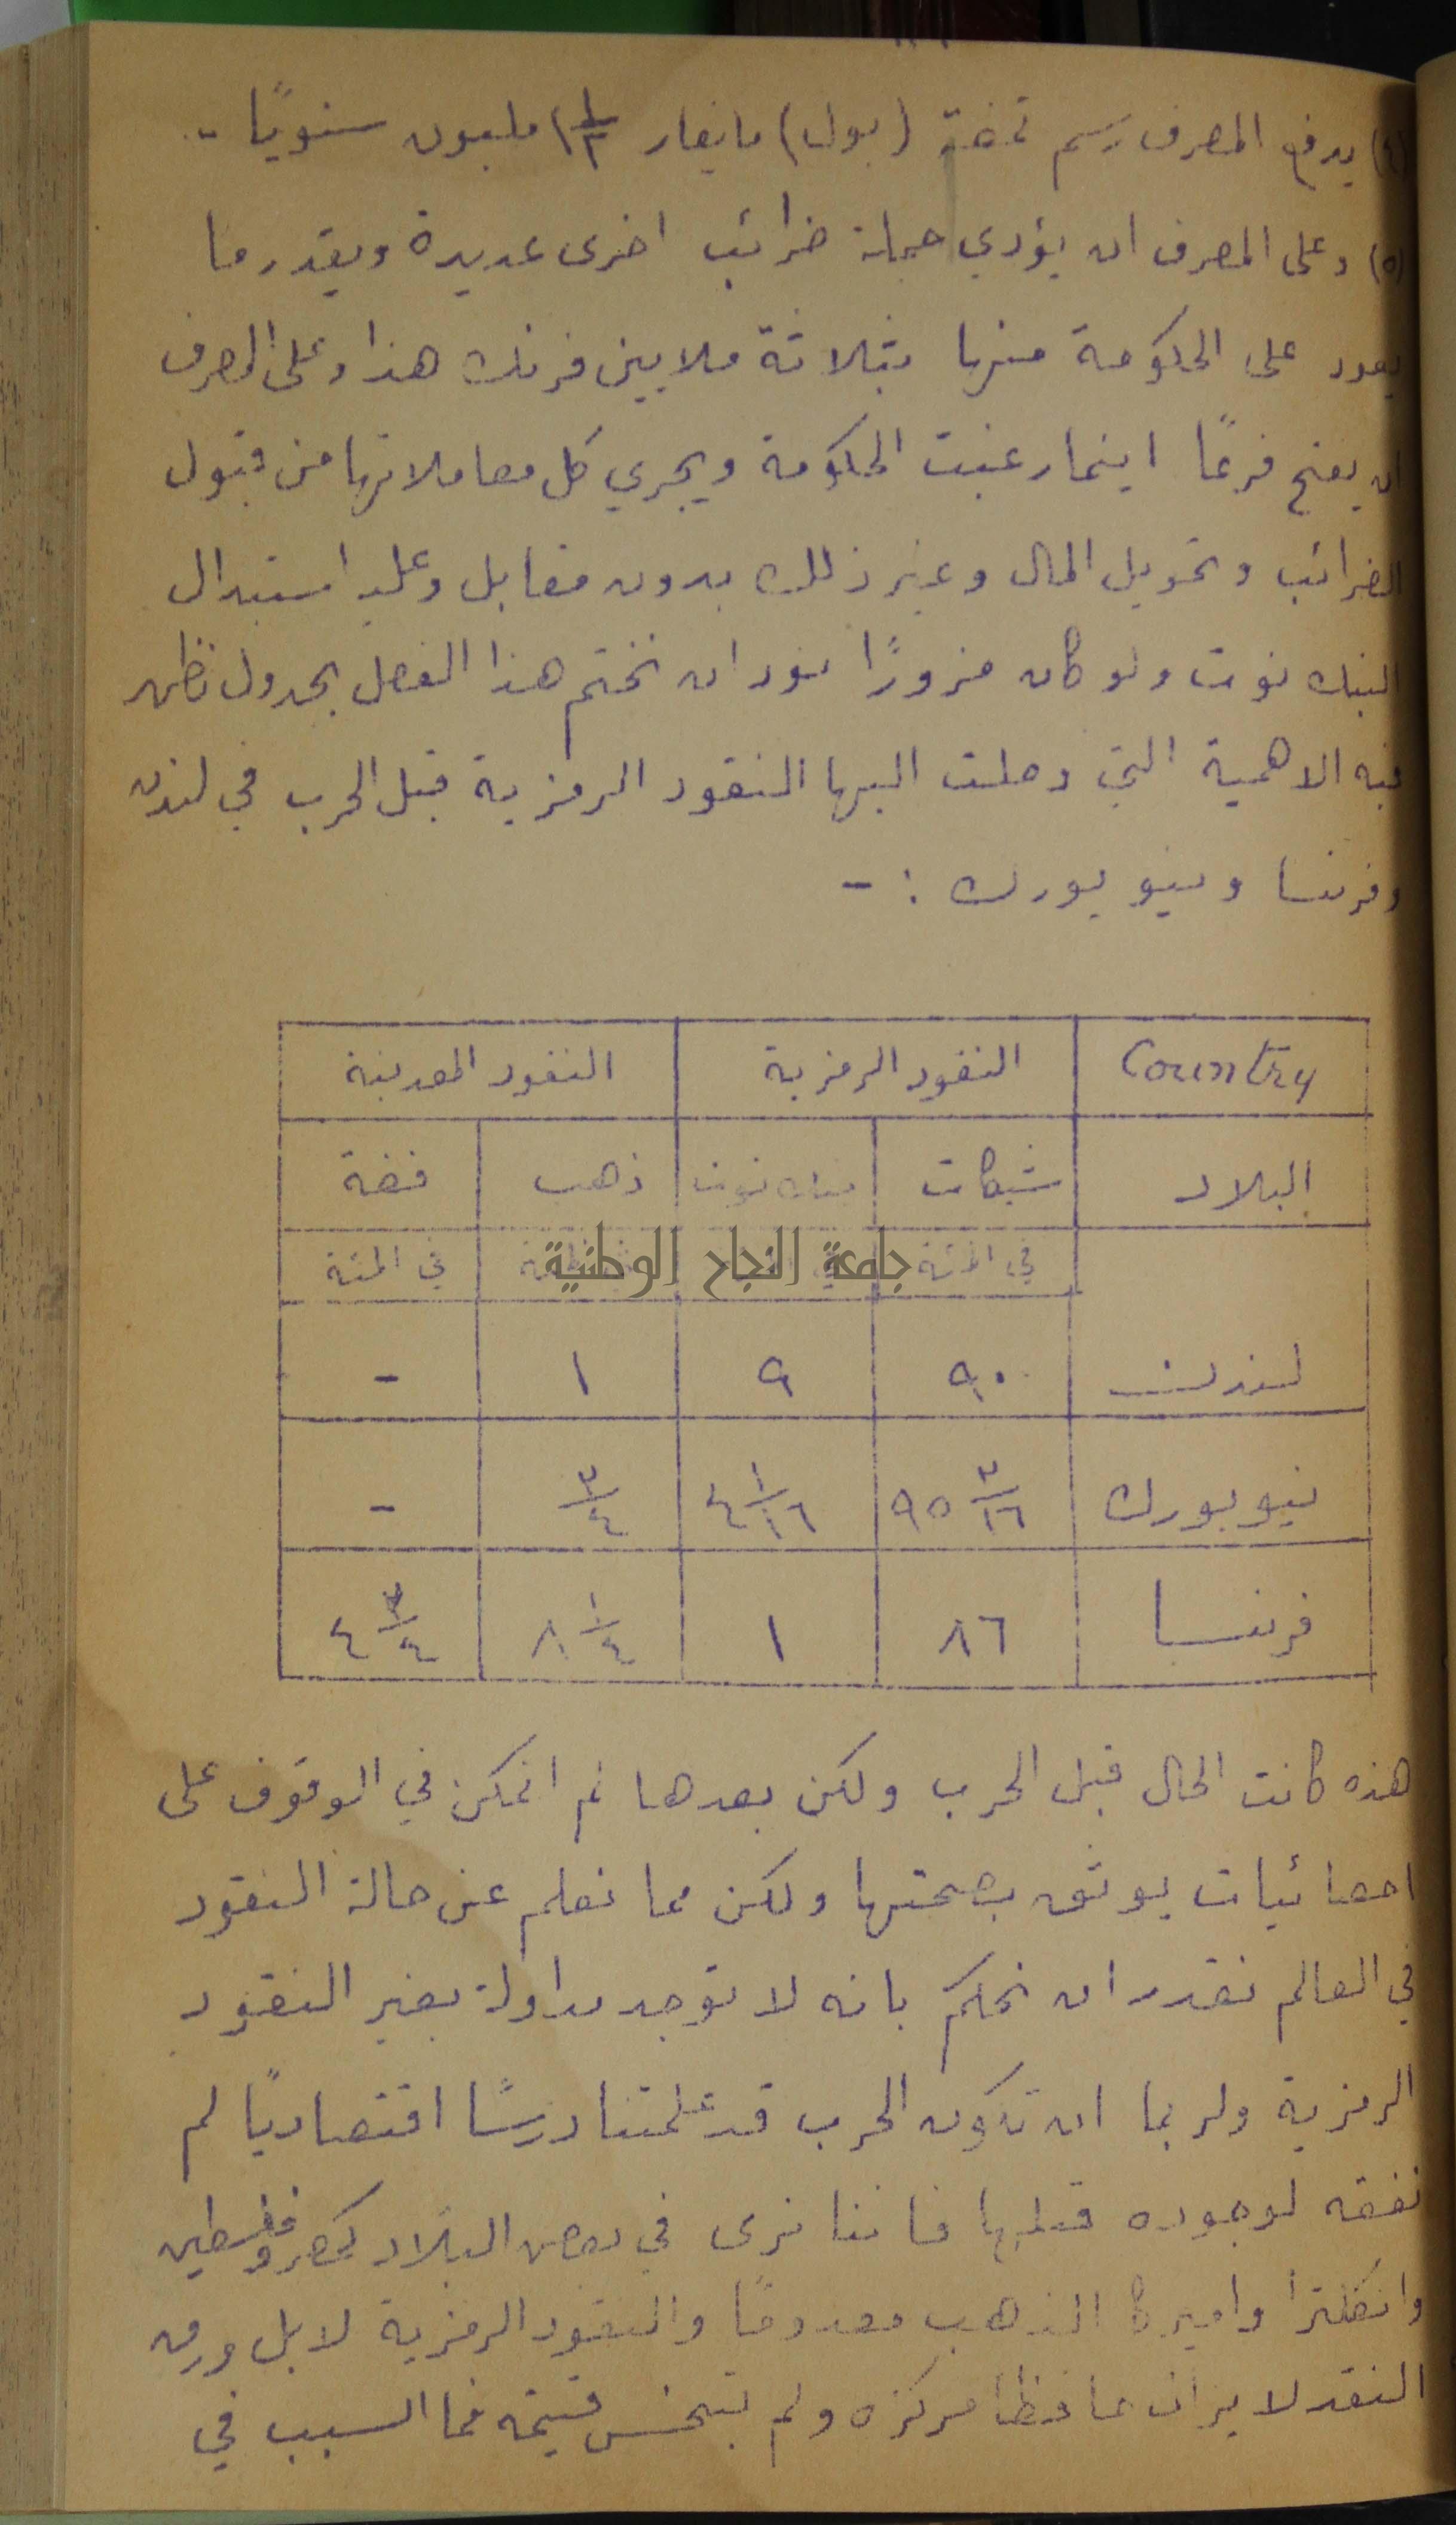 (٤) يدفع المصرف رسم تمغة (بول) ما يقارب ١ ١/٢ مليون سنويًا -
(٥) وعلى المصرف ان يؤدي جملة ضرائب اخرى عديدة ويقدر ما
يعود على الحكومة منها بثلاثة ملايين فرنك هذا وعلى المصرف
ان يفتح فرعًا اينما رغبت الحكومة ويجري كل معاملاتها من قبول
الضرائب وتحويل المال وغير ذلك بدون مقابل وعليه استبدال
البنك نوت ولو كان مزورًا نود ان نختم هذا الفصل بجدول نظهر
فيه الاهمية التي وصلت اليها النقود الرمزية قبل الحرب في لندن
وفرنسا ونيو يورك : -
Country النقود الرمزية النقود المعدنية
البلاد شيكات بنك نوت ذهب فضة
في المئة في المئة في المئة في المئة
جامعة النجاح الوطنية
لندن ٩٠ ٩ ١ -
نيويورك ٩٥ ٣/١٦ ٤ ١/١٦ ٣/٤ -
فرنسا ٨٦ ١ ٨ ١/٤ ٤ ٣/٤
هذه كانت الحال قبل الحرب ولكن بعدها لم اتمكن في الوقوف على
احصائيات يوثق بصحتها ولكن مما نعلم عن حالة النقود
في العالم نقدر ان نحكم بانه لا توجد مداولة بغير النقود
الرمزية ولربما ان تكون الحرب قد علمتنا درسًا اقتصاديًا لم
نفقه لوجوده قبلها فاننا نرى في بعض البلاد كمصر وفلسطين
وانكلترا واميركا الذهب معدومًا والنقود الرمزية لا بل ورق
النقد لا يزال محافظا مركزه ولم تبخس قيمته فما السبب في